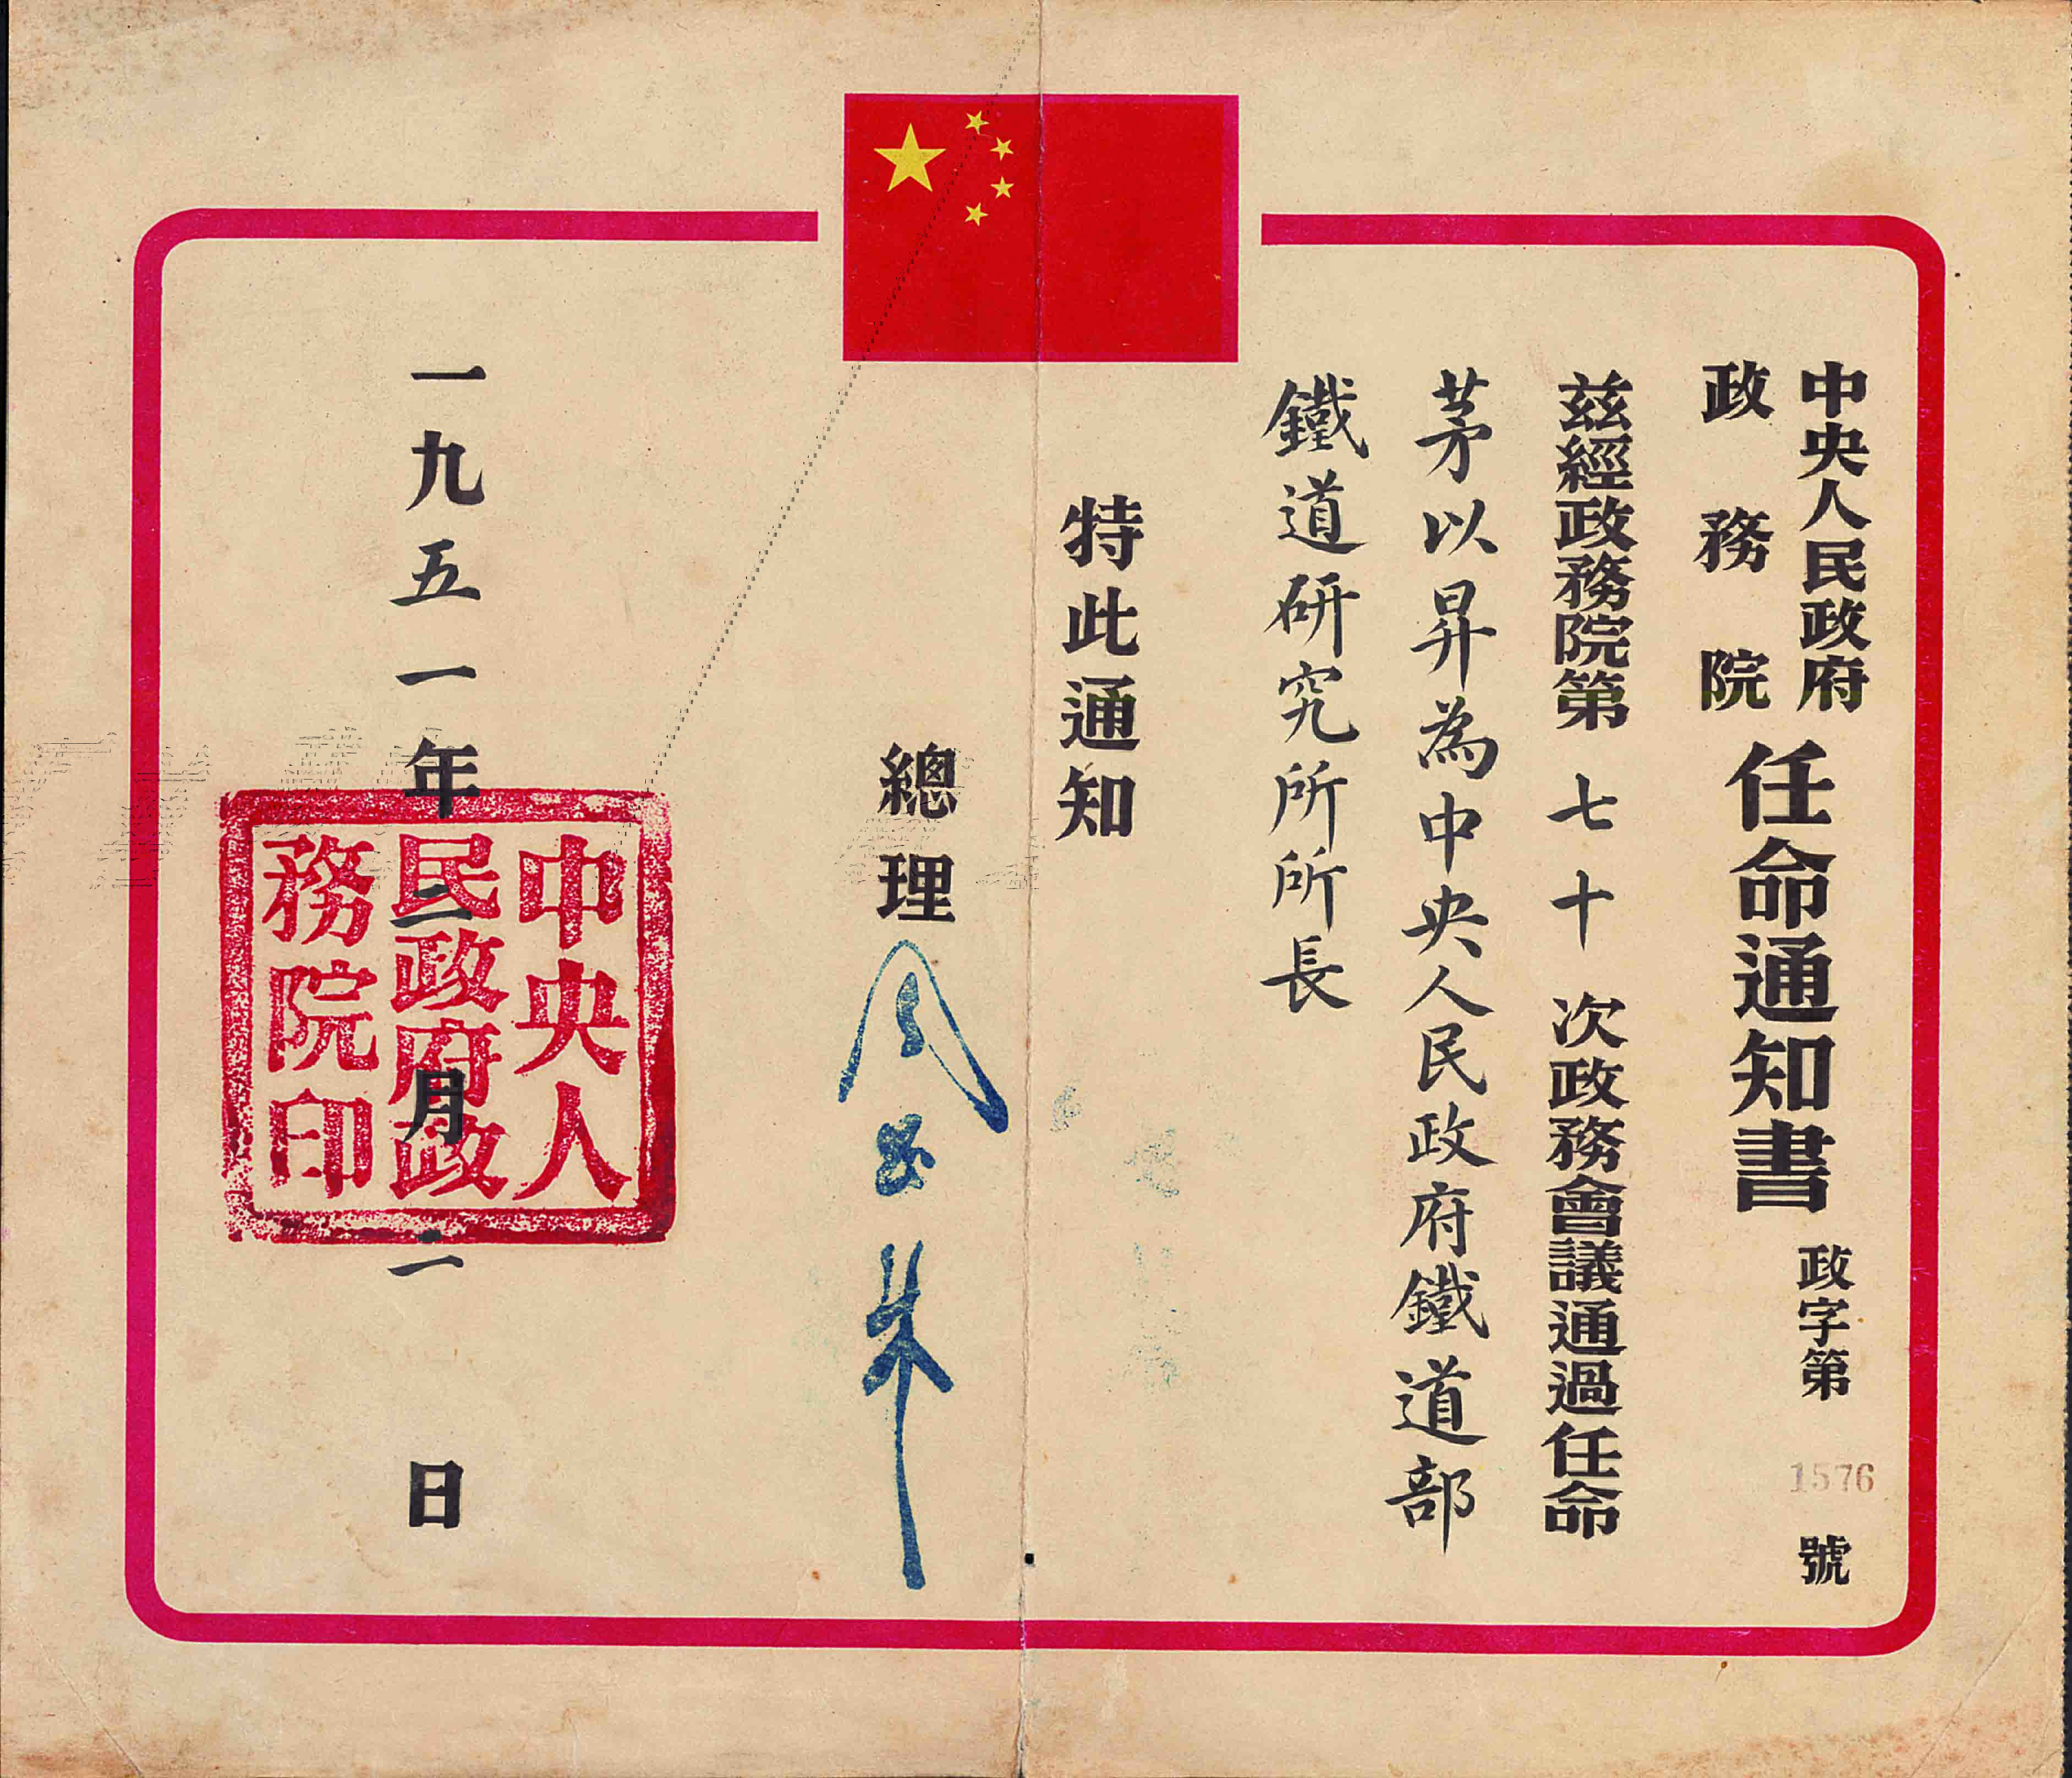 中央人民政府
政務院
任命通知書
政字第1576號
茲經政務院第七十次政務會議通過任命
茅以昇為中央人民政府鐵道部
鐵道研究所所長
特此通知
總理周恩來
一九五一年二月二日
中央人
民政府政
務院印